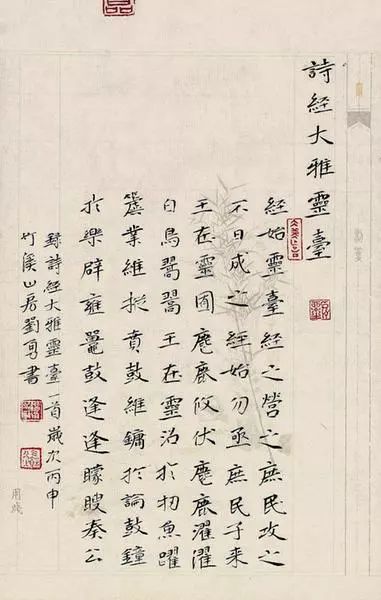 詩經大雅靈臺
經始靈臺經之營之庶民攻之
不日成之經始勿亟庶民子來
王在靈囿麀鹿攸伏麀鹿濯濯
白鳥翯翯王在靈沼於牣魚躍
虡業維樅賁鼓維鏞於論鼓鐘
於樂辟雍鼉鼓逢逢矇瞍奏公
錄詩經大雅靈臺一首歲次丙申
竹溪山居劉勇書
用箋